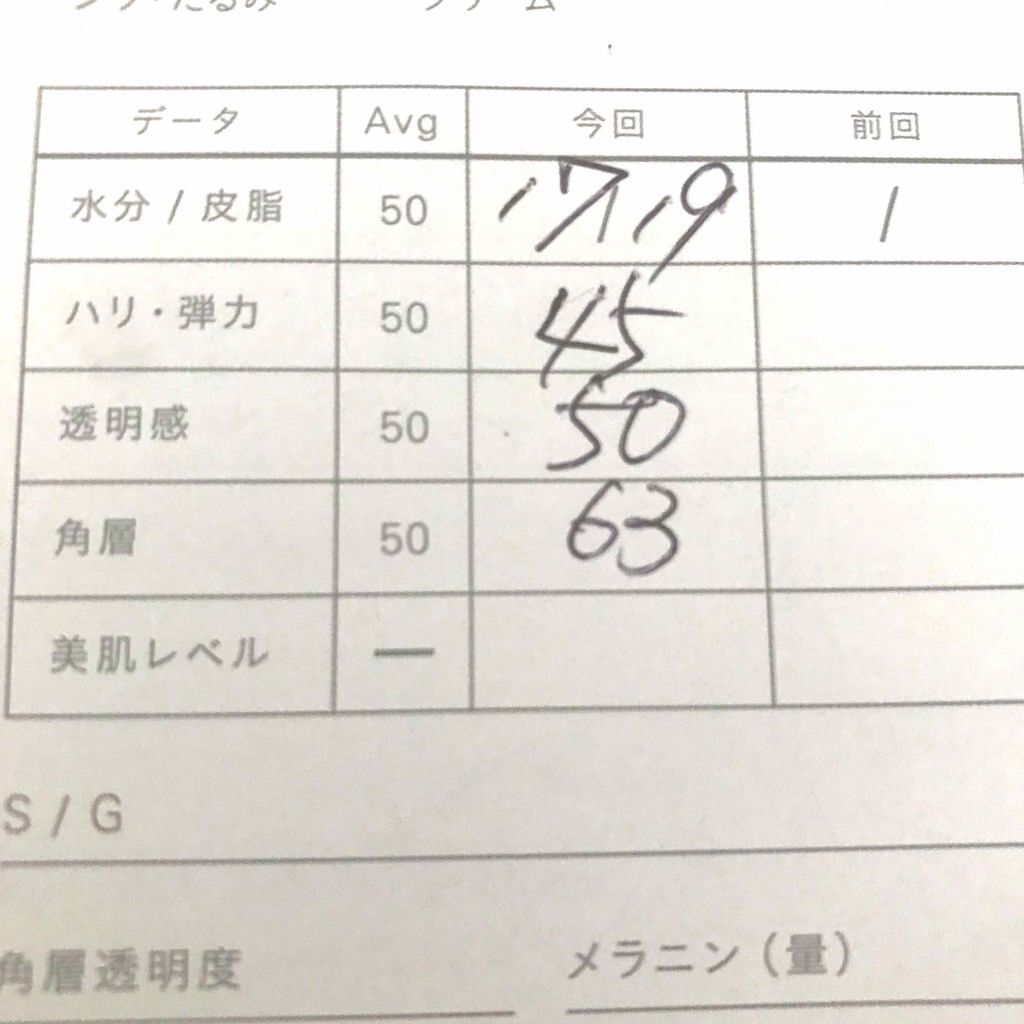 データ Avg 今回 前回
水分 / 皮脂 50 17/19 /
ハリ・弾力 50 45
透明感 50 50
角層 50 63
美肌レベル ー
S / G
角層透明度 メラニン（量）